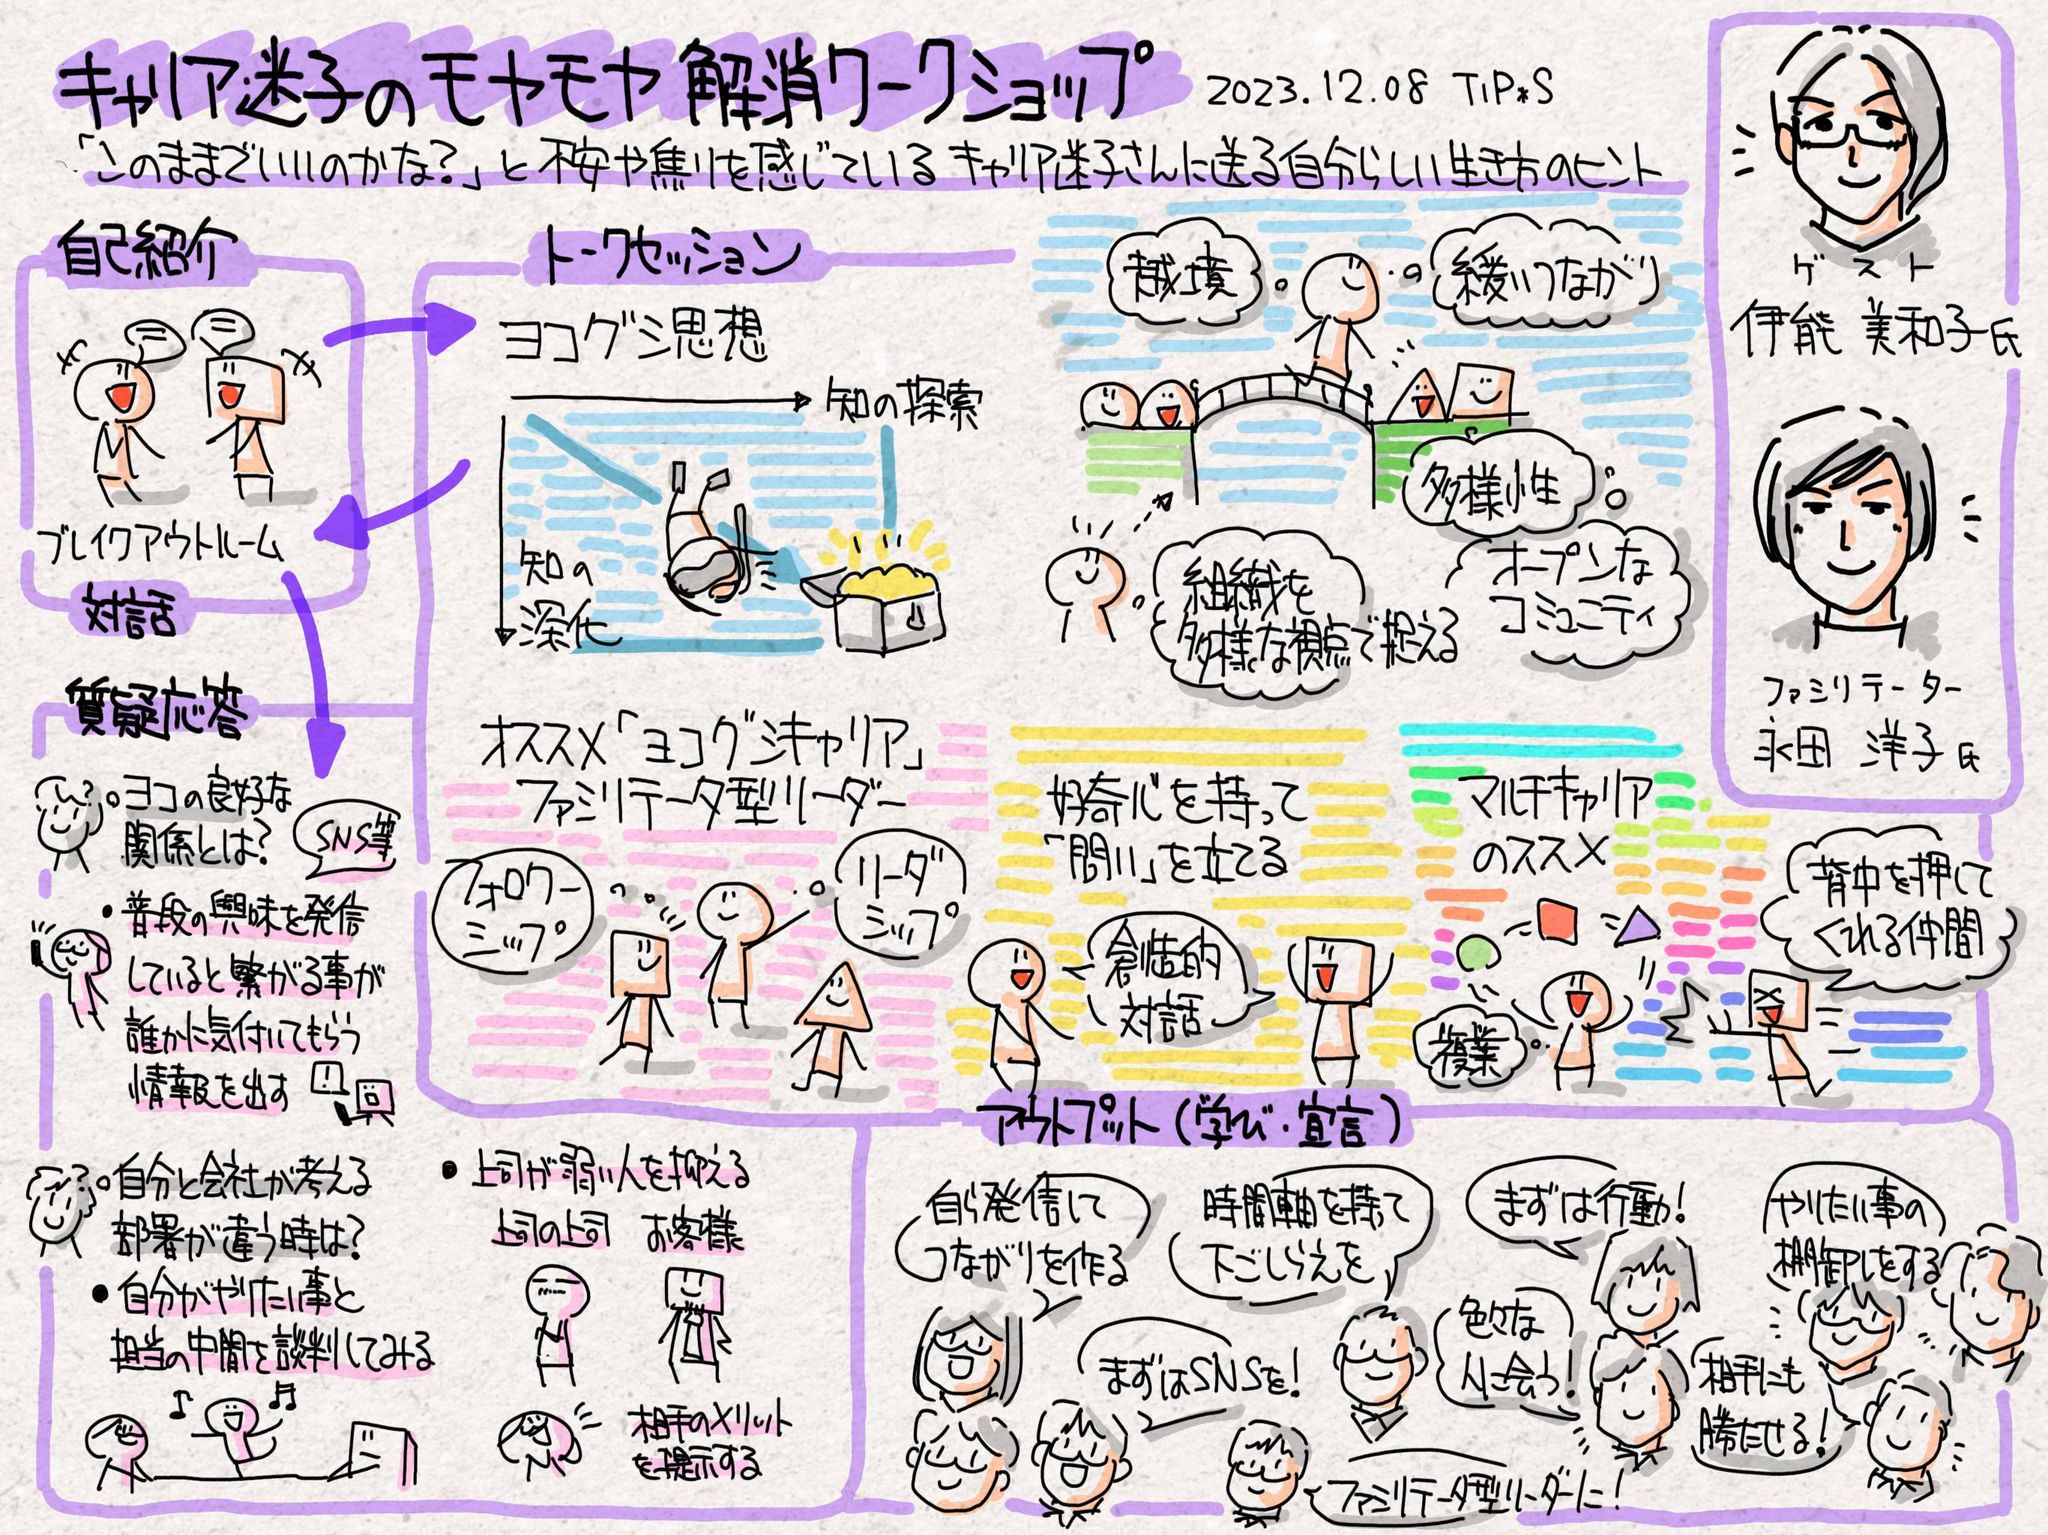 キャリア迷子のモヤモヤ解消ワークショップ 2023.12.08 TIP*S
「このままでいいのかな?」と不安や焦りを感じているキャリア迷子さんに送る自分らしい生き方のヒント
ゲスト
伊能 美和子氏
ファシリテーター
永田 洋子氏
自己紹介
ブレイクアウトルーム
対話
トークセッション
ヨコグシ思想
知の探索
知の
深化
越境
緩いつながり
多様性
オープンな
コミュニティ
組織を
多様な視点で捉える
オススメ「ヨコグシキャリア」
ファシリテータ型リーダー
フォロワー
シップ
リーダ
シップ
好奇心を持って
「問い」を立てる
創造的
対話
マルチキャリア
のススメ
複業
背中を押して
くれる仲間
質疑応答
ヨコの良好な
関係とは?
SNS等
・普段の興味を発信
していると繋がる事が
誰かに気付いてもらう
情報を出す
自分と会社が考える
部署が違う時は?
・自分がやりたい事と
担当の中間を談判してみる
・上司が弱い人を抑える
上司の上司 お客様
相手のメリット
を提示する
アウトプット(学び・宣言)
自ら発信して
つながりを作る
時間軸を持って
下ごしらえを
まずは行動!
やりたい事の
棚卸しをする
まずはSNSを!
色々な
人に会う!
相手にも
勝たせる!
ファシリテータ型リーダーに!